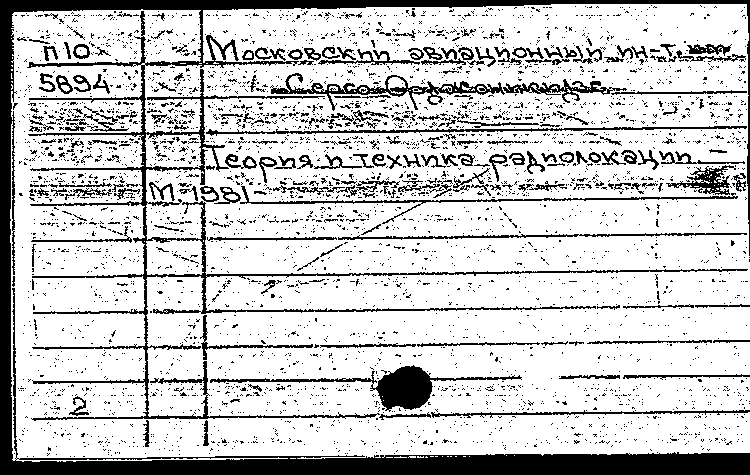 П10 Московский авиационный ин-т.
5894 Серго Орджоникидзе
Теория и техника радиолокации. –
М. 1981 –
2